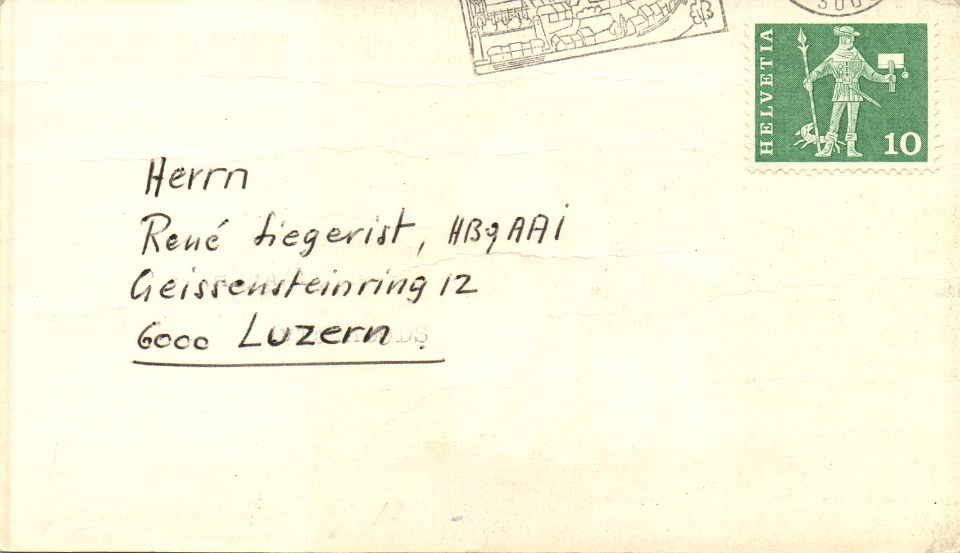 SUD
HELVETIA
10
Herrn
René Siegerist, HB9AAI
Geissensteinring 12
6000 Luzern